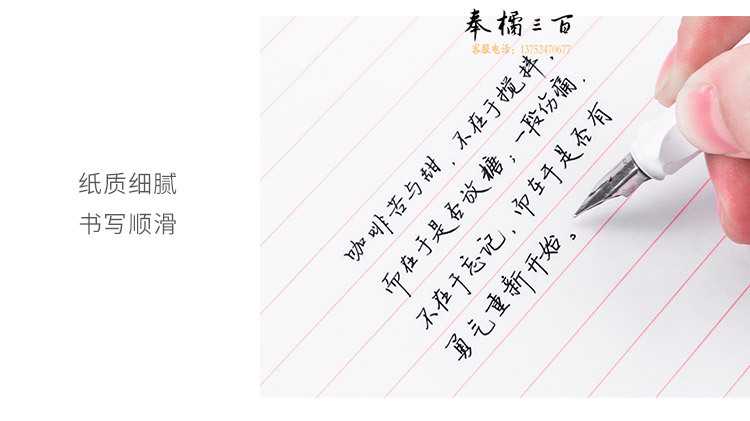 奉橘三百
客服电话：13752470677
纸质细腻
书写顺滑
咖啡苦与甜，不在于搅拌，
而在于是否放糖；一段伤痛，
不在于忘记，而在于是否有
勇气重新开始。